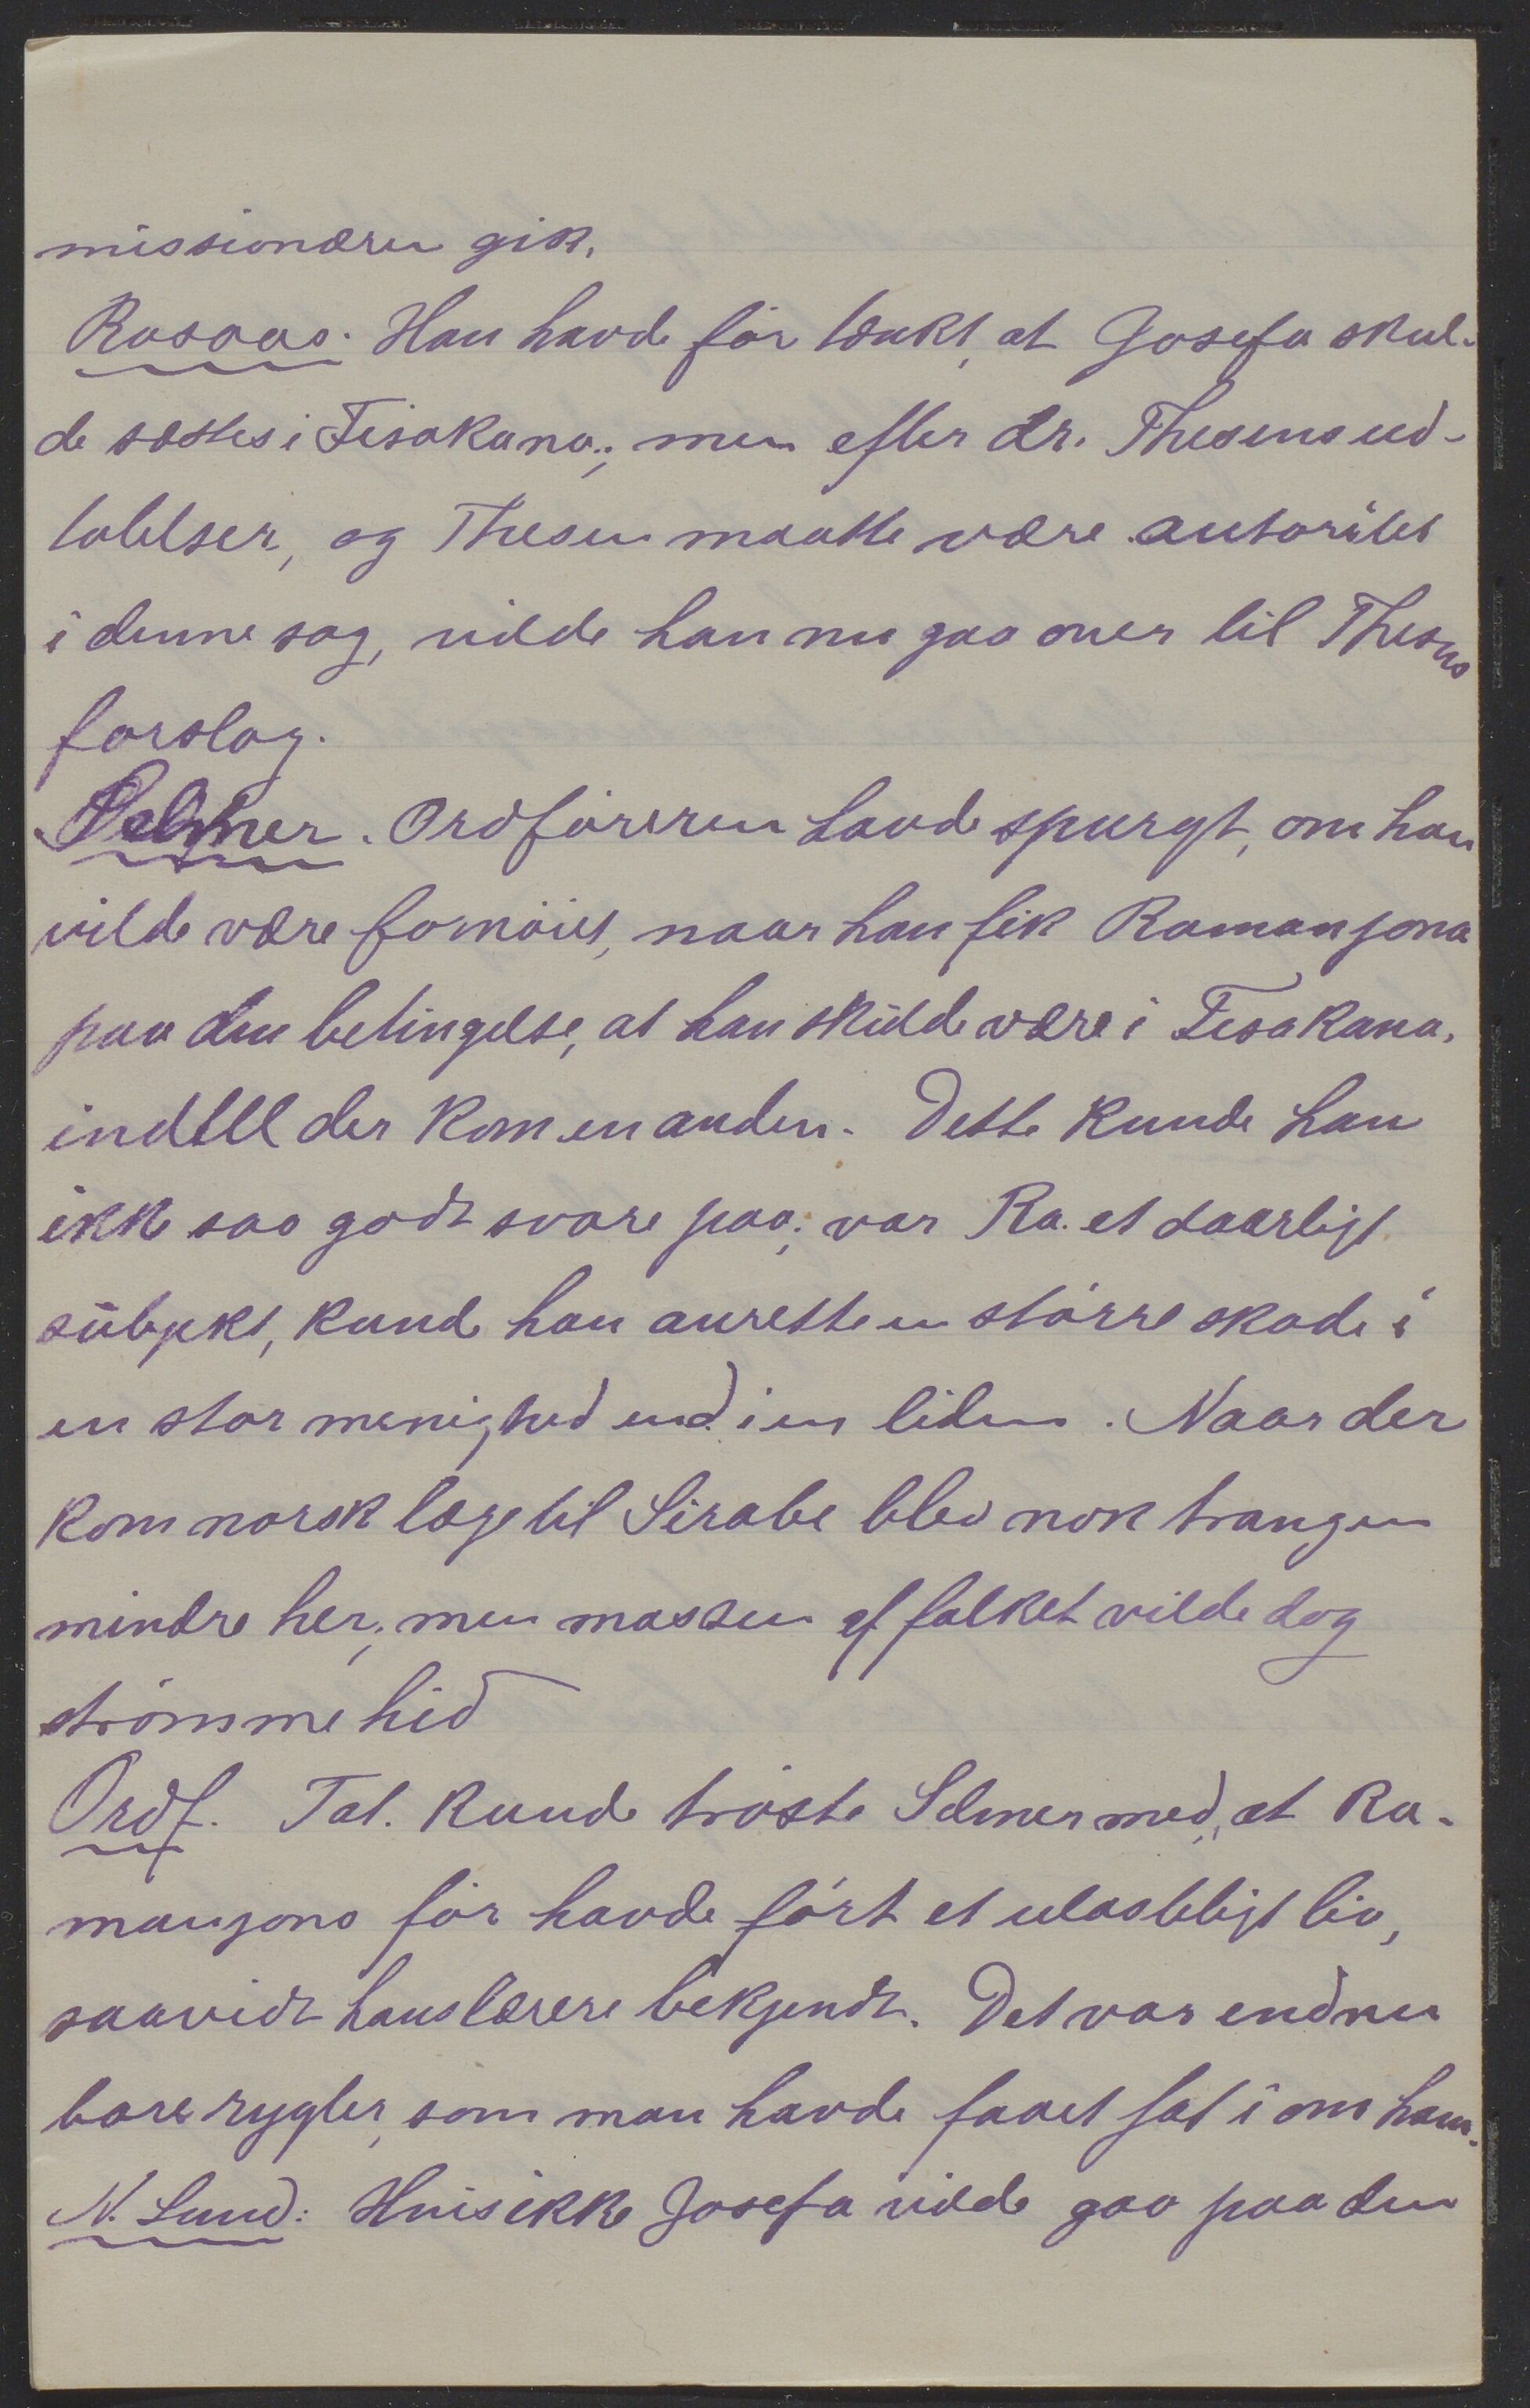 missionæren gik.
Rosaas. Han havde för tænkt, at Josefa skul-
de sættes i Fisakana; men efter dr. Thesens ud-
talelser, og Thesen maatte være autoritet
i denne sag, vilde han nu gaa over til Thesens
forslag.
Selmer. Ordföreren havde spurgt, om han
vilde være fornöiet, naar han fik Ramanjona
paa den betingelse, at han skulde være i Fisakana,
indtil der kom en anden. Dette kunde han
ikke saa godt svare paa; var Ra. et daarligt
subjekt, kunde han anrette en större skade i
en stor menighed end i en liden. Naar der
kom norsk læge til Sirabe blev nok trangen
mindre her; men massen af folket vilde dog
strömme hid
Ordf. Tal. kunde tröste Selmer med, at Ra-
manjona för havde fört et ulasteligt liv,
saavidt hans lærere bekjendt. Det var endnu
bare rygter, som man havde faaet fat i om ham.
N. Lund: Hvis ikke Josefa vilde gaa paa den